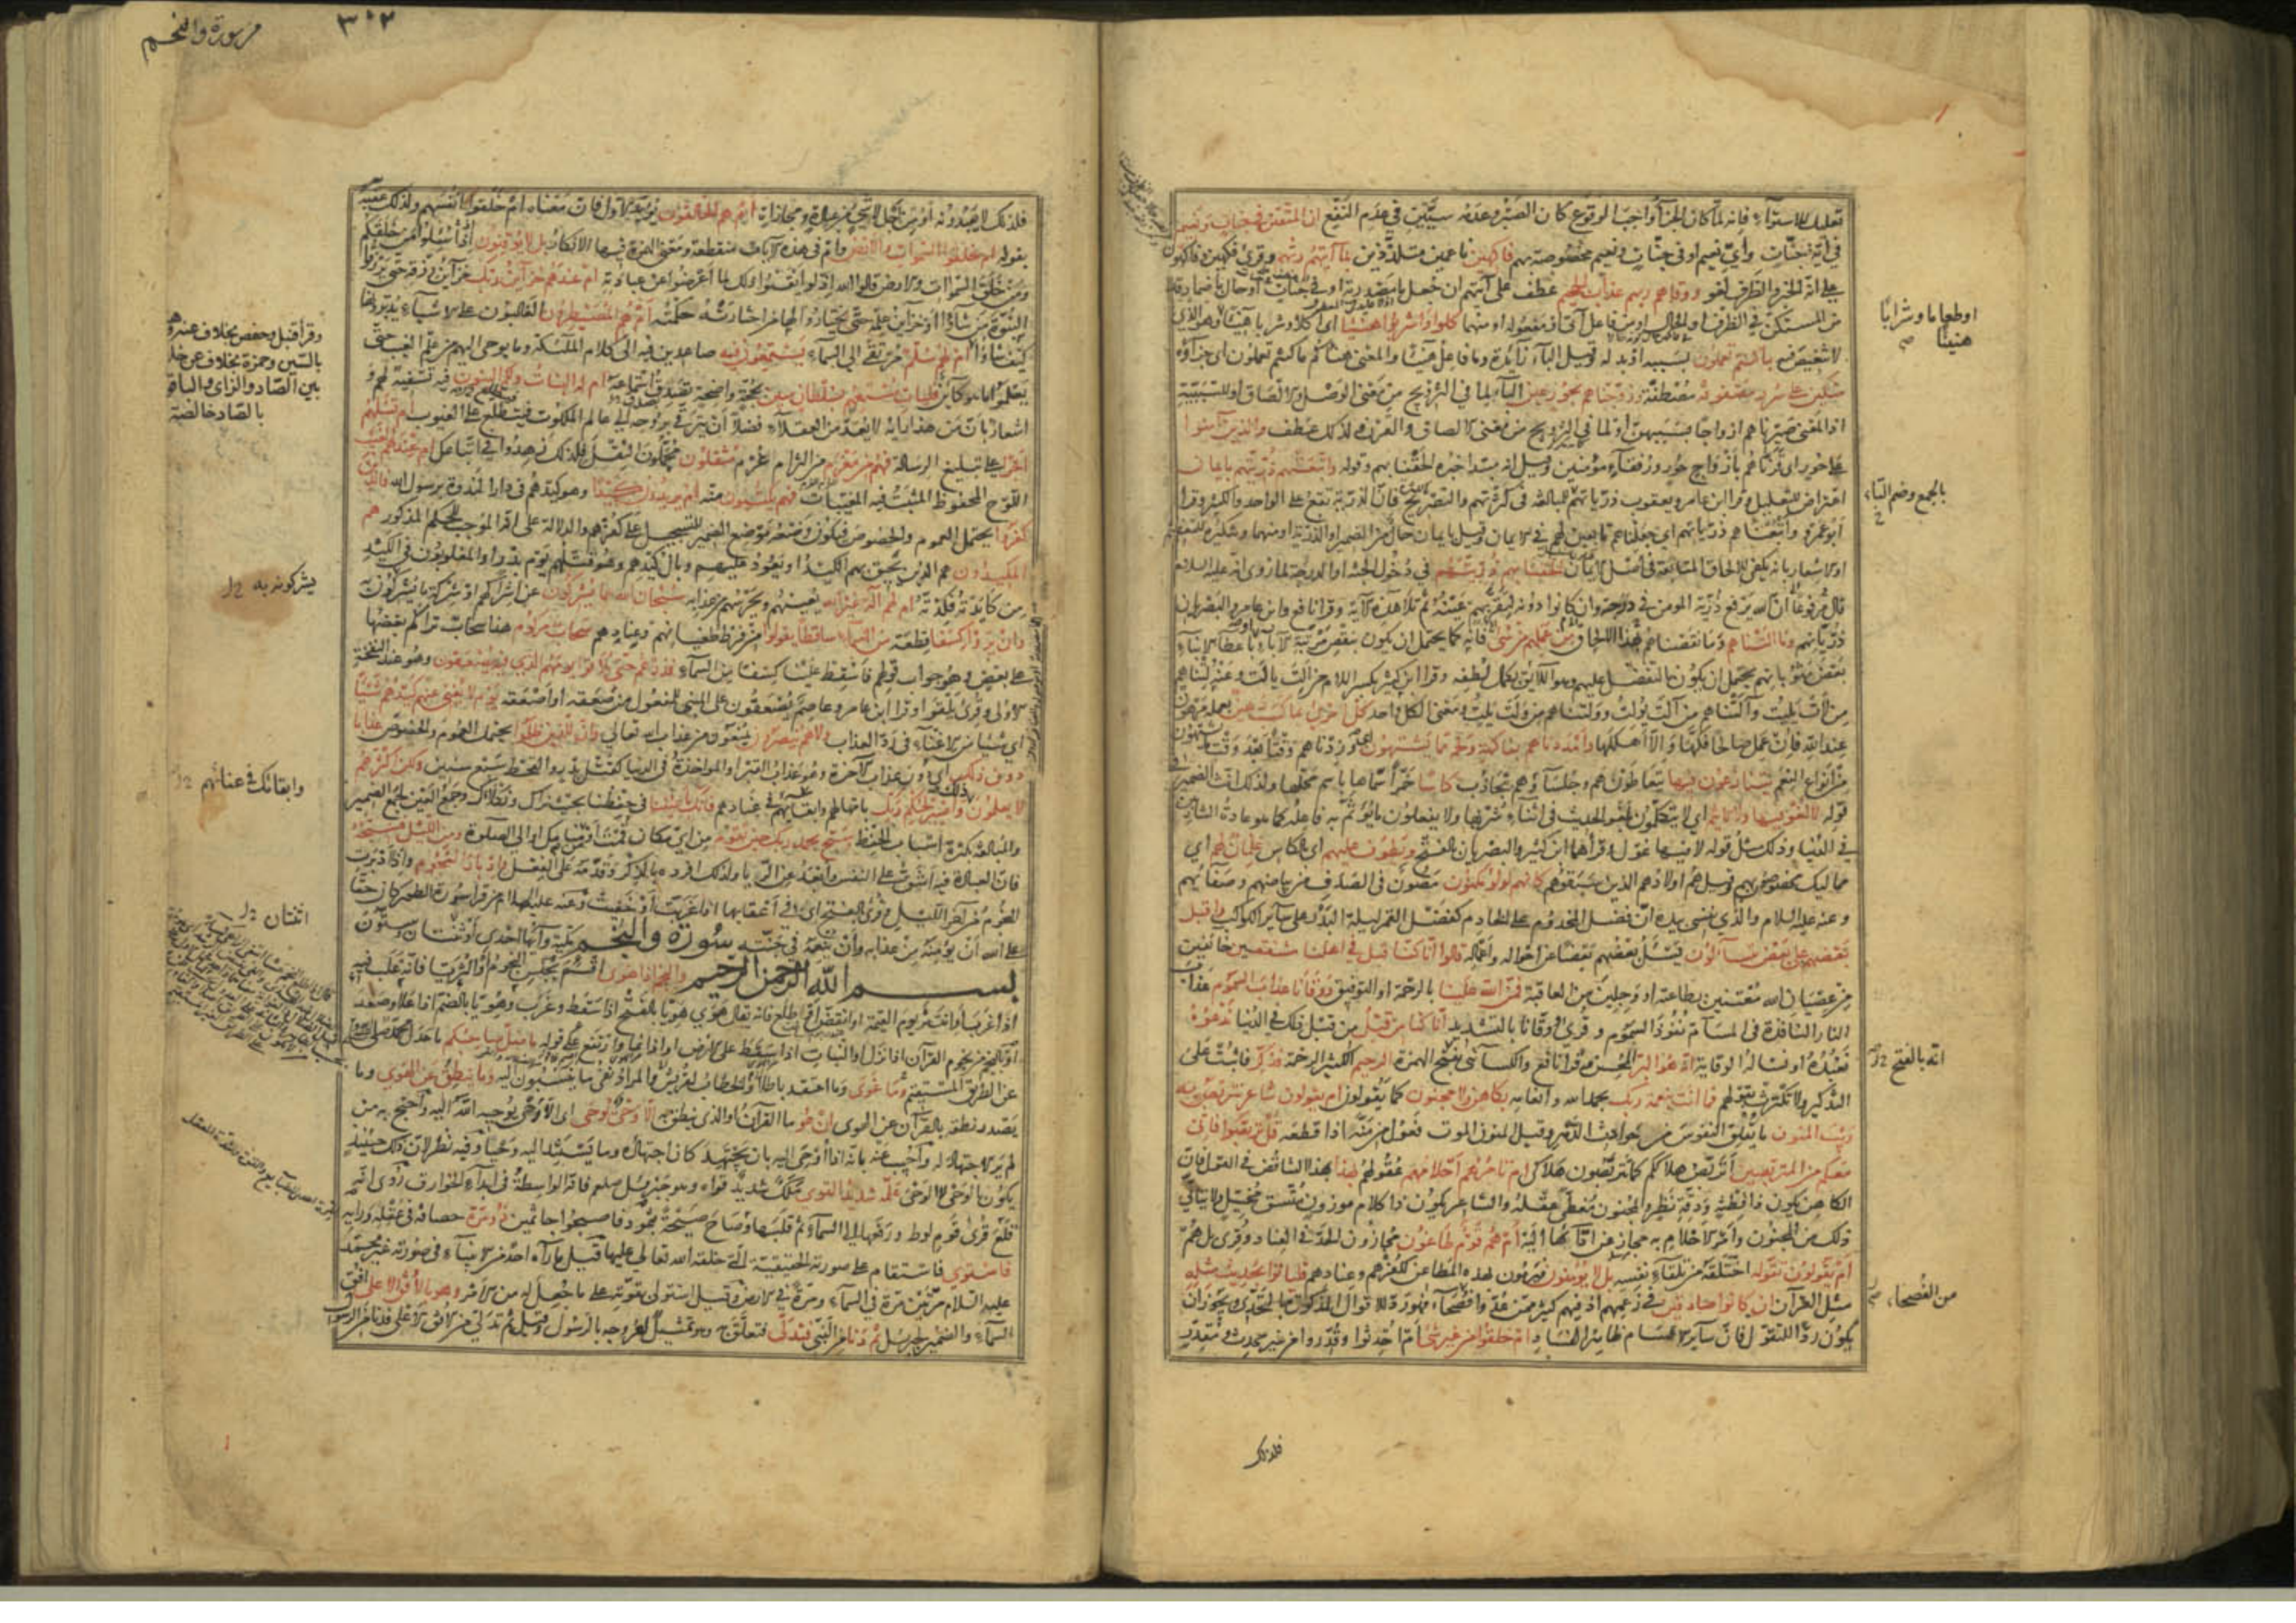 تعليل للاستواء فانه لما كان الجزاء واجب الوقوع كان الصبر وعدمه سيين في عدم النفع ان المتقين في جنات ونعيم
في اية جنات واي نعيم او في جنات ونعيم مخصوصة بهم فاكهين ناعمين متلذذين بما آتيهم ربهم وقرئ فكهين وفاكهون
على انه الخبر والظرف لغو ووقاهم ربهم عذاب الجحيم عطف على آتيهم ان جعل ما مصدرية او في جنات او حال باضمار قد
من المستكن في الظرف او الحال او من فاعل آتى او مفعوله او منهما كلوا واشربوا هنيئا اي اكلا وشربا هنيئا وهو الذي
لا تنغيص فيه بما كنتم تعملون بسببه او بدله وقيل الباء زائدة وما فاعل هنيئا والمعنى هنأكم ما كنتم تعملون اي جزاؤه
متكئين على سرر مصفوفة مصطفة وزوجناهم بحور عين الباء لما في التزويج من معنى الوصل والالصاق او للسببية
اذ المعنى صيرناهم ازواجا بسببهن او لما في التزويج من معنى الالصاق والقرن ولذلك عطف والذين آمنوا
على حور اي قرناهم بازواج حور ورفقاء مؤمنين وقيل انه مبتدأ خبره الحقنا بهم وقوله واتبعتهم ذريتهم بايمان
اعتراض للتعليل وقرا ابن عامر ويعقوب ذرياتهم للمبالغة في كثرتهم والتصريح فان الذرية تقع على الواحد والكثير وقرا
ابو عمرو واتبعناهم ذرياتهم اي جعلناهم تابعين لهم في الايمان وقيل بايمان حال من الضمير او الذرية او منهما وتنكيره للتعظيم
او الاشعار بانه يكفي للالحاق المتابعة في اصل الايمان الحقنا بهم ذريتهم في دخول الجنة او الدرجة لما روى انه عليه السلام
قال مرفوعا ان الله يرفع ذرية المومن في درجته وان كانوا دونه لتقر بهم عينه ثم تلا هذه الآية وقرا نافع وابن عامر والبصريان
ذرياتهم وما التناهم وما نقصناهم بهذا الالحاق من عملهم من شئ فانه كما يحتمل ان يكون بنقص مرتبة الآباء باعطاء الابناء
بعض مثوباتهم يحتمل ان يكون بالتفضل عليهم وهو اللائق بكمال لطفه وقرا ابن كثير بكسر اللام من الت يالت وعنه لتناهم
من لات يليت وآلتناهم من آلت يولت وولتناهم من ولت يلت ومعنى الكل واحد كل امرئ بما كسب رهين بعمله مرهون
عند الله فان عمل صالحا فكها والا اهلكها وامددناهم بفاكهة ولحم مما يشتهون اي وزدناهم وقتا بعد وقت ما يشتهون
من انواع النعم يتنازعون فيها يتعاطون هم وجلساؤهم بتجاذب كاسا خمرا سماها باسم محلها ولذلك انث الضمير في
قوله لا لغو فيها ولا تاثيم اي لا يتكلمون بلغو الحديث في اثناء شربها ولا يفعلون ما يؤثم به فاعله كما هو عادة الشاربين
في الدنيا وذلك مثل قوله لا فيها غول وقرأهما ابن كثير والبصريان بالفتح ويطوف عليهم اي بالكاس غلمان لهم اي
مماليك مخصوصون بهم وقيل هم اولادهم الذين سبقوهم كانهم لؤلؤ مكنون مصون في الصدف من بياضهم وصفائهم
وعنه عليه السلام والذي نفسي بيده ان فضل المخدوم على الخادم كفضل القمر ليلة البدر على سائر الكواكب واقبل
بعضهم على بعض يتساءلون يسئل بعضهم بعضا عن احواله واعماله قالوا انا كنا قبل في اهلنا مشفقين خائفين
من عصيان الله معتنين بطاعته او وجلين من العاقبة فمن الله علينا بالرحمة او التوفيق ووقانا عذاب السموم عذاب
النار النافذة في المسام نفوذ السموم وقرئ ووقانا بالتشديد انا كنا من قبل من قبل ذلك في الدنيا ندعوه
نعبده او نساله الوقاية انه هو البر المحسن وقرا نافع والكسائي بفتح الهمزة الرحيم الكثير الرحمة فذكر فاثبت على
التذكير ولا تكترث بقولهم فما انت بنعمة ربك بحمد الله وانعامه بكاهن ولا مجنون كما يقولون ام يقولون شاعر نتربص به
ريب المنون ما يقلق النفوس من حوادث الدهر وقيل المنون الموت فعول من منه اذا قطعه قل تربصوا فاني
معكم من المتربصين اتربص هلاككم كما تتربصون هلاكي ام تامرهم احلامهم عقولهم بهذا بهذا التناقض في القول فان
الكاهن يكون ذا فطنة ودقة نظر والمجنون مغطى عقله والشاعر يكون ذا كلام موزون متسق مخيل ولا يتاتى
ذلك من المجنون وامر الاحلام به مجاز عن ادائها اليه ام هم قوم طاغون مجاوزون الحد في العناد وقرئ بل هم
ام يقولون تقوله اختلقه من تلقاء نفسه بل لا يؤمنون فيرمون بهذه المطاعن لكفرهم وعنادهم فلياتوا بحديث مثله
مثل القرآن ان كانوا صادقين في زعمهم اذ فيهم كثير ممن عدوا فصحاء فهو رد للاقوال المذكورة بالتحدي ويجوز ان
يكون ردا للتقول فان سائر الاقسام ظاهر الفساد ام خلقوا من غير شئ ام احدثوا وقدروا من غير محدث ومقدر
او طعاما وشرابا
هنيئا
بالجمع وضم التاء
انه بالفتح
من الفصحاء
فلذلك
من سورة والنجم
٣٠٢
فلذلك لا يعبدونه او من اجل لا شئ من عبادة ومجازاة ام هم الخالقون يؤيد الاول فان معناه ام خلقوا انفسهم ولذلك عقبه
بقوله ام خلقوا السموات والارض وام في هذه الآيات منقطعة ومعنى الهمزة فيها الانكار بل لا يوقنون اذا سئلوا من خلقكم
ومن خلق السموات والارض قالوا الله اذ لو ايقنوا ذلك لما اعرضوا عن عبادته ام عندهم خزائن ربك خزائن رزقه حتى يرزقوا
النبوة من شاؤا او خزائن علمه حتى يختاروا لها من اختارته حكمته ام هم المصيطرون الغالبون على الاشياء يدبرونها
كيف شاؤا ام لهم سلم مرتقى الى السماء يستمعون فيه صاعدين فيه الى كلام الملئكة وما يوحى اليهم من علم الغيب حتى
يعلموا ما هو كائن فليات مستمعهم بسلطان مبين بحجة واضحة تصدق استماعه ام له البنات ولكم البنون فيه تسفيه لهم و
اشعار بان من هذا رايه لا يعد من العقلاء فضلا ان يترقى بروحه الى عالم الملكوت فيتطلع على الغيوب ام تسئلهم
اجرا على تبليغ الرسالة فهم من مغرم من التزام غرم مثقلون محملون الثقل فلذلك زهدوا في اتباعك ام عندهم الغيب
اللوح المحفوظ المثبت فيه المغيبات فهم يكتبون منه ام يريدون كيدا وهو كيدهم في دار الندوة برسول الله فالذين
كفروا يحتمل العموم والخصوص فيكون وضعه موضع الضمير للتسجيل على كفرهم والدلالة على انه الموجب للحكم المذكور هم
المكيدون هم الذين يحيق بهم الكيد او يعود عليهم وبال كيدهم وهو قتلهم يوم بدر او المغلوبون في الكيد
من كايدته فكدته ام لهم اله غير الله يعينهم ويحرسهم من عذابه سبحان الله عما يشركون عن اشراكهم او شركة ما يشركون به
وان يروا كسفا قطعة من السماء ساقطا يقولوا من فرط طغيانهم وعنادهم سحاب مركوم هذا سحاب تراكم بعضها
على بعض وهو جواب قولهم فاسقط علينا كسفا من السماء فذرهم حتى يلاقوا يومهم الذي فيه يصعقون وهو عند النفخة
الاولى وقرئ يلقوا وقرا ابن عامر وعاصم يصعقون على المبني للمفعول من صعقه او اصعقه يوم لا يغني عنهم كيدهم شيئا
اي شيئا من الاغناء في رد العذاب ولا هم ينصرون يمنعون من عذاب الله تعالى وان للذين ظلموا يحتمل العموم والخصوص عذابا
دون ذلك اي دون عذاب الآخرة وهو عذاب القبر او المواخذة في الدنيا كقتل بدر والقحط سبع سنين ولكن اكثرهم
لا يعلمون ذلك واصبر لحكم ربك بامهالهم وابقائهم في عنادهم فانك باعيننا في حفظنا بحيث نراك ونكلاك وجمع العين لجمع الضمير
والمبالغة بكثرة اسباب الحفظ وسبح بحمد ربك حين تقوم من اي مكان قمت او من منامك او الى الصلوة ومن الليل فسبحه
فان العبادة فيه اشق على النفس وابعد عن الريا ولذلك افرده بالذكر وقدمه على الفعل وادبار النجوم واذا ادبرت
النجوم من آخر الليل وقرئ بالفتح اي في اعقابها اذا غربت او خفيت وعنه عليه السلام من قرا سورة الطور كان حقا
على الله ان يؤمنه من عذابه وان ينعمه في جنته سورة والنجم مكية وآيها احدى او ثنتان وستون
بسم الله الرحمن الرحيم والنجم اذا هوى اقسم بجنس النجوم او الثريا فانه غلب فيه
اذا غرب او انتثر يوم القيمة او انقض او طلع فانه يقال هوى هويا بالفتح اذا سقط وغرب وهويا بالضم اذا علا وصعد
او بالنجم من نجوم القرآن اذا نزل او النبات اذا سقط على الارض او اذا نما وارتفع على قوله ما ضل صاحبكم ما عدل محمد صلى الله عليه وسلم
عن الطريق المستقيم وما غوى وما اعتقد باطلا والخطاب لقريش والمراد نفي ما ينسبون اليه وما ينطق عن الهوى وما
يصدر نطقه بالقرآن عن الهوى ان هو ما القرآن او الذي ينطق به الا وحي يوحى اي الا وحي يوحيه الله اليه واحتج به من
لم ير الاجتهاد له واجيب عنه بانه اذا اوحى اليه بان يجتهد كان اجتهاده وما يستند اليه وحيا وفيه نظر لان ذلك حينئذ
يكون بالوحي لا الوحي علمه شديد القوى ملك شديد قواه وهو جبرئيل صلعم فانه الواسطة في ابداء الخوارق روى انه
قلع قرى قوم لوط ورفعها الى السماء ثم قلبها وصاح صيحة بثمود فاصبحوا جاثمين ذو مرة حصافة في عقله ورايه
فاستوى فاستقام على صورته الحقيقية التي خلقه الله تعالى عليها قيل ما رآه احد من الانبياء في صورته غير محمد
عليه السلام مرتين مرة في السماء ومرة في الارض وقيل استولى بقوته على ما جعل له من الامر وهو بالافق الاعلى افق
السماء والضمير لجبريل ثم دنا من النبي فتدلى فتعلق به وهو تمثيل لعروجه بالرسول وقيل ثم تدلى من الافق الاعلى فدنا من الرسول
وقرأ قنبل وحفص بخلاف عنه
بالسين وحمزة بخلاف عن خلاد
بين الصاد والزاي والباقون
بالصاد خالصة
يشركونه به
وابقائك في عنائهم
اثنتان